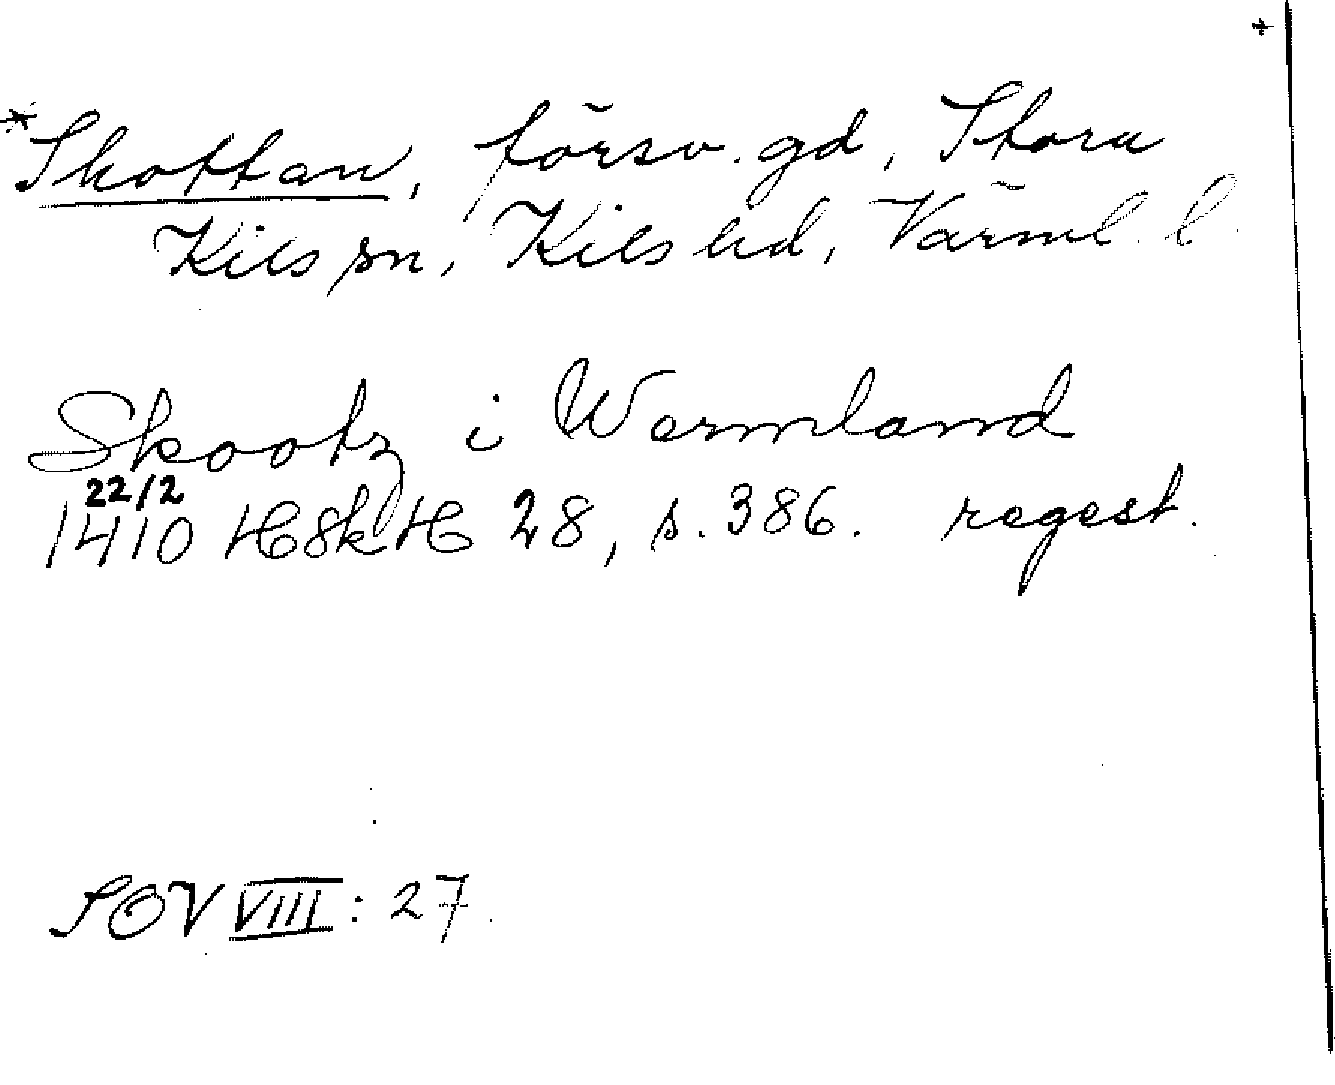 +
*Skottan, försv. gd, Stora
Kils sn, Kils hd, Värml. l.
Skootz i Wermland
22/2
1410 HSkH 28, s. 386. regest.
SOV VIII: 27.